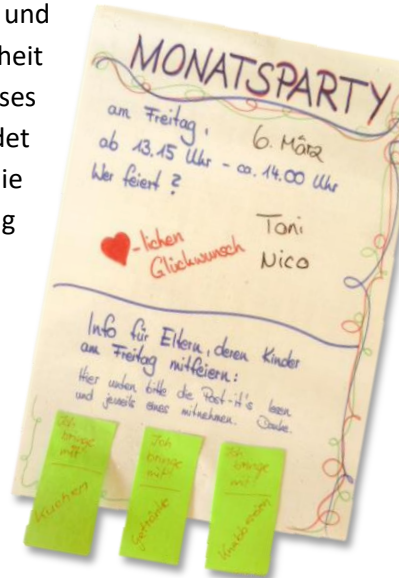 und
heit
ses
det
ie
g
MONATSPARTY
am Freitag, 6. März
ab 13.15 Uhr - ca. 14.00 Uhr
Wer feiert?
Toni
Nico
-lichen
Glückwunsch
Info für Eltern, deren Kinder
am Freitag mitfeiern:
Hier unten bitte die Post-it's lesen
und jeweils eines mitnehmen. Danke.
Ich
bringe
mit:
Kuchen
Ich
bringe
mit:
Getränke
Ich
bringe
mit: